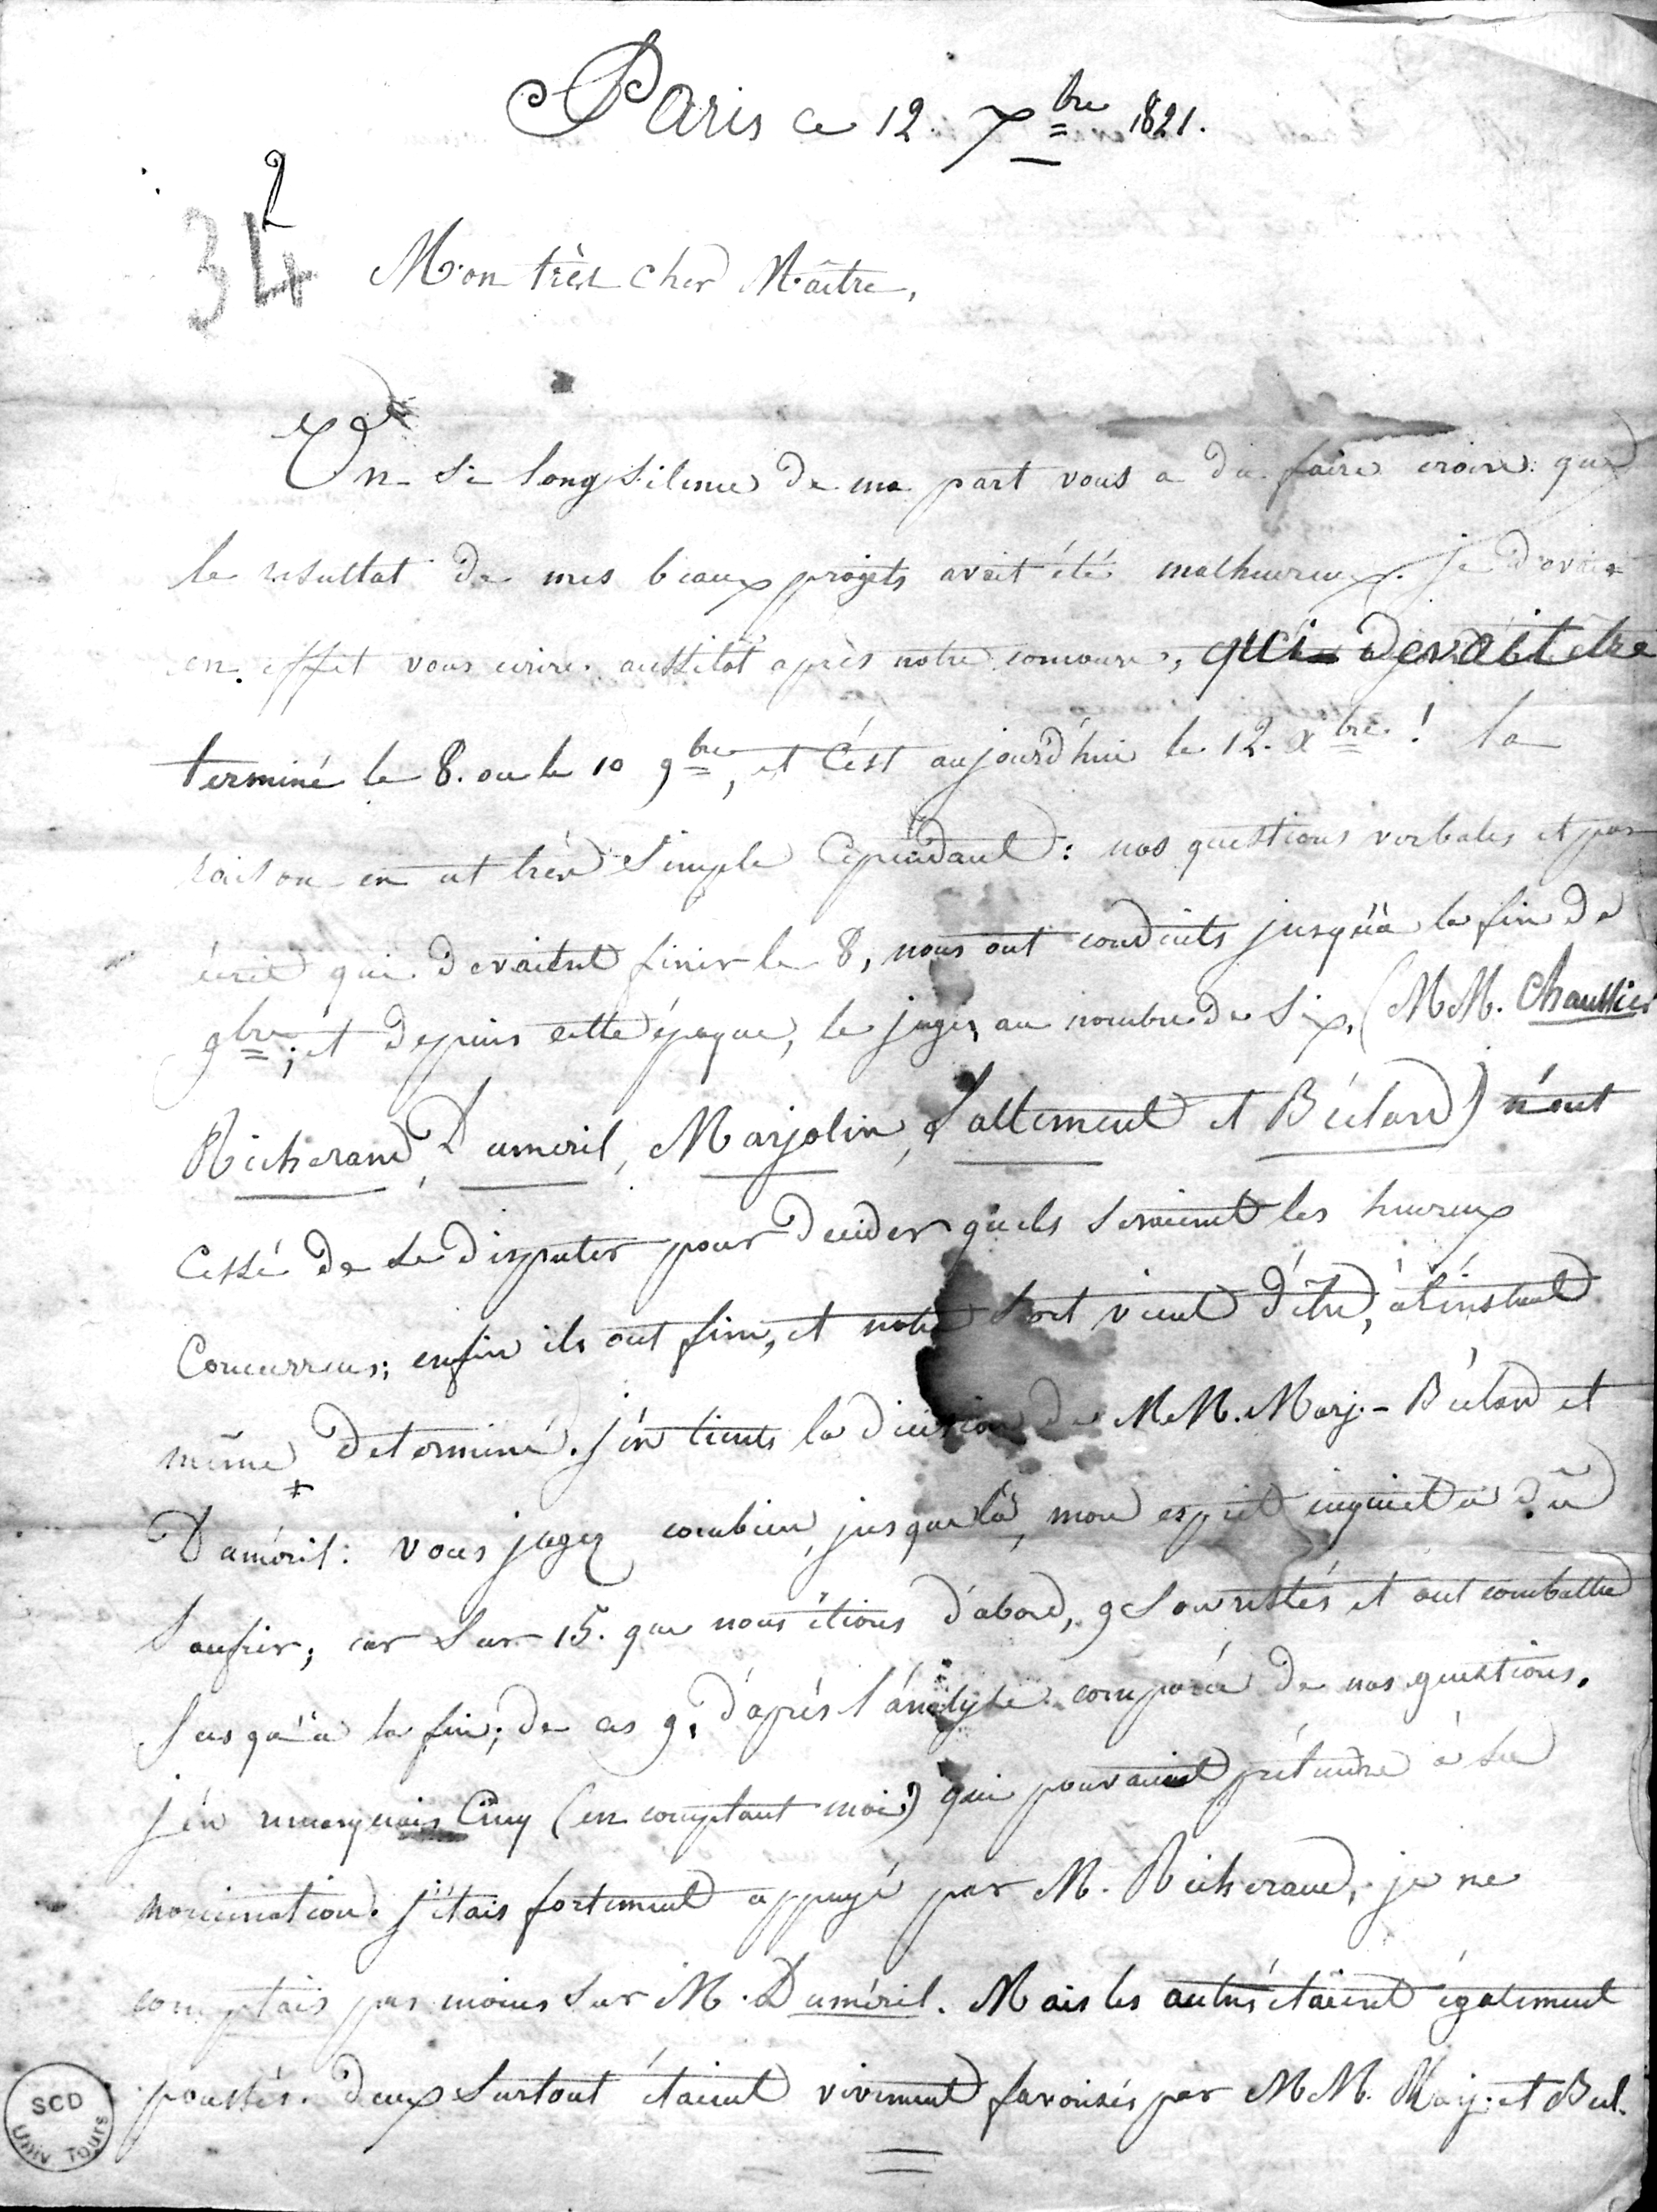 Paris ce 12. Xbre 1821.
2
34
Mon très cher Maître,
Un si long silence de ma part vous a du faire croire que
le resultat de mes beaux projets avait été malheureux. je devais
en effet vous ecrire aussitôt après notre concours, qui devait être
terminé le 8. ou le 10 9bre, et c'est aujourd'hui le 12. Xbre! la
raison en est très simple cependant: nos questions verbales et par
écrit qui devaient finir le 8, nous ont conduits jusqu'à la fin de
9bre; et depuis cette époque, le juges, au nombre de six, (MM. Chaussier
Richerand, Dumeril, Marjolin, Lallement et Béclard) n'ont
cessé de se disputer pour decider quels seraient les heureux
Concurrens; enfin ils ont fini, et notre sort vient d'être, à l'instant
même determiné. j'en tiens la decision de MM. Marj.- Béclard et
Duméril: vous jugez combien, jusque là, mon esprit inquiet a dû
soufrir; car sur 15. que nous étions d'abord, 9 sont restés et ont combattu
jusqu'à la fin; de ces 9, d'après l'analyse comparée de nos questions,
j'en remarquais Cinq (en comptant moi) qui pouvaient prétendre à la
nomination. j'étais fortement appuyé par M. Richerand, je ne
comptais pas moins sur M. Duméril. Mais les autres étaient également
poussés. deux surtout étaient vivement favorisés par MM. Marj. et Bécl.
SCD
Univ Tours